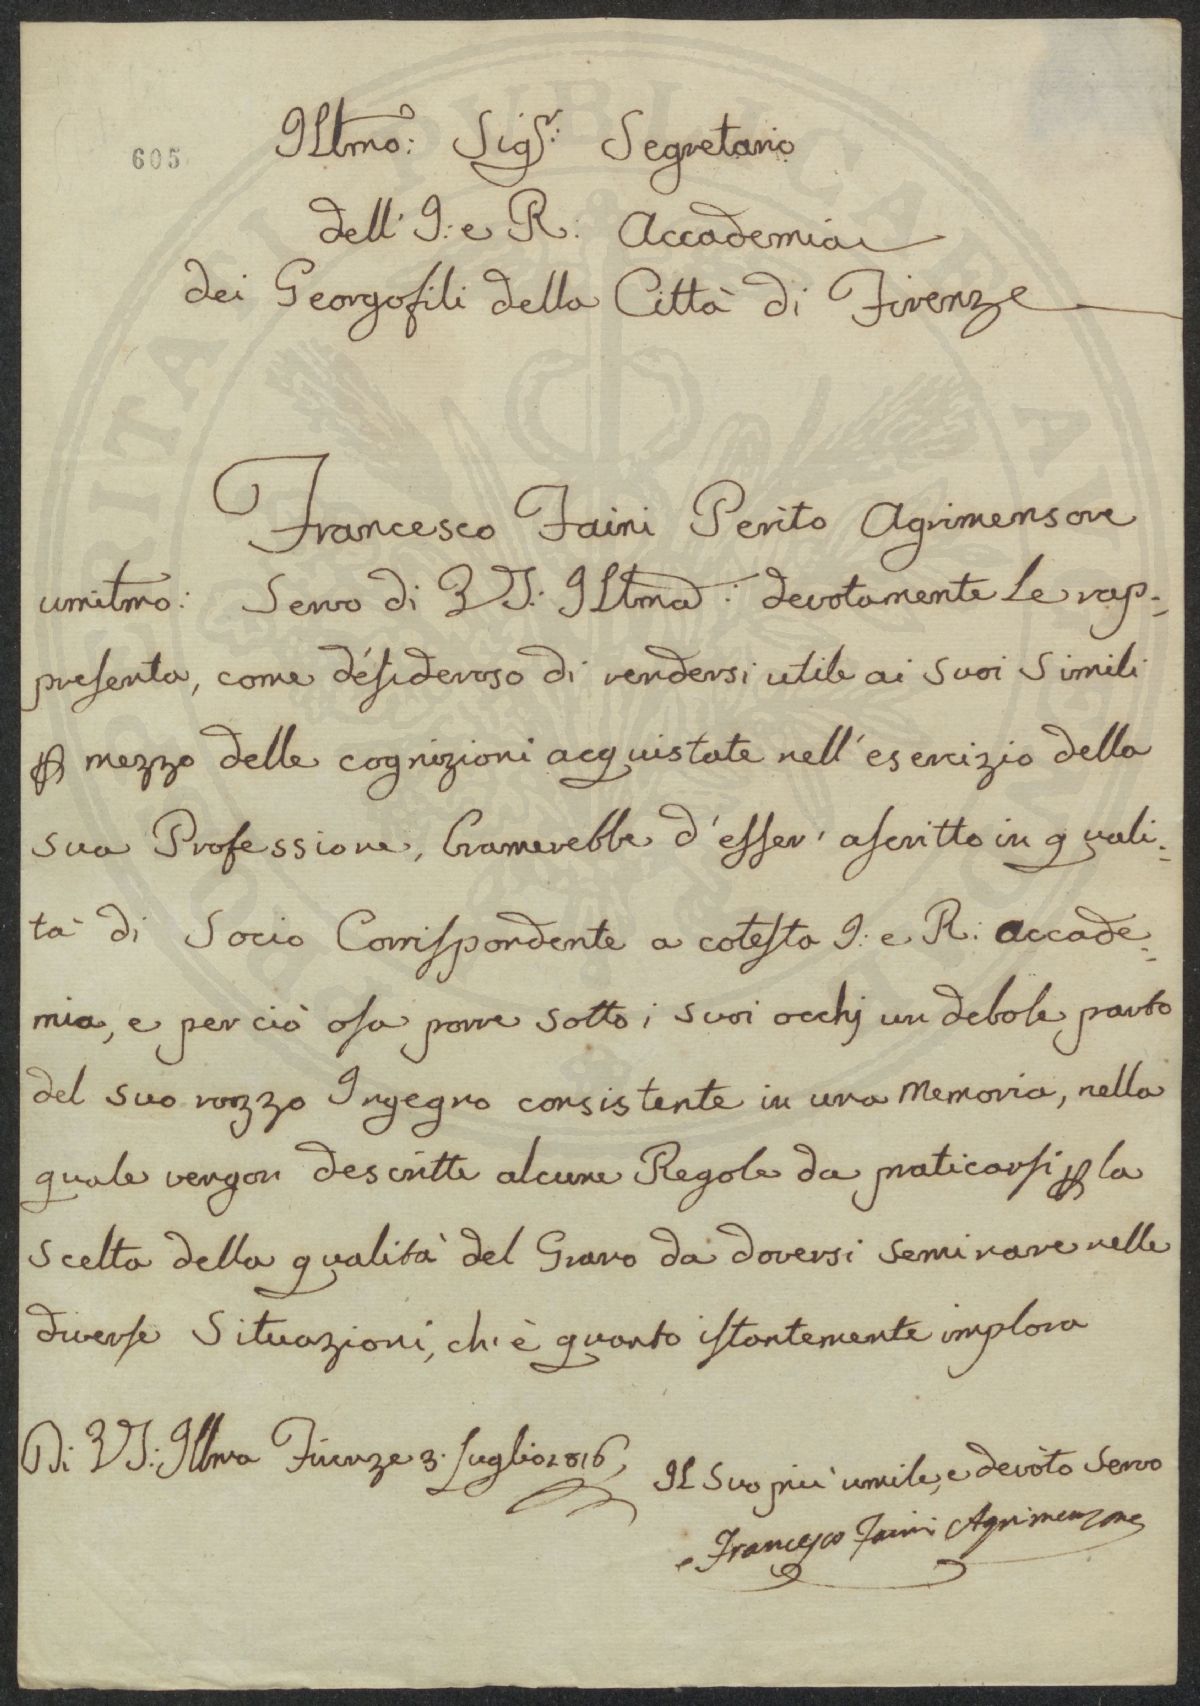 605
Illmo: Sigr: Segretario
dell' I: e R: Accademia
dei Georgofili della Città di Firenze
Francesco Faini Perito Agrimensore
umilmo: Servo di VS: Illma: devotamente Le rap=
presenta, come desideroso di rendersi utile ai suoi simili
p mezzo delle cognizioni acquistate nell' esercizio della
sua Professione, bramerebbe d'esser' ascritto in quali=
tà di Socio Corrispondente a cotesta I: e R: Accade=
mia, e perciò osa porre sotto i suoi occhj un debole parto
del suo rozzo Ingegno consistente in una Memoria, nella
quale vengon descritte alcune Regole da praticarsi p la
scelta della qualità del Grano da doversi seminare nelle
diverse Situazioni, ch' è quanto istantemente implora
Di VS: Illma Firenze 3. Luglio 1816
Il Suo più umile, e devoto Servo
Francesco Faini Agrimensore